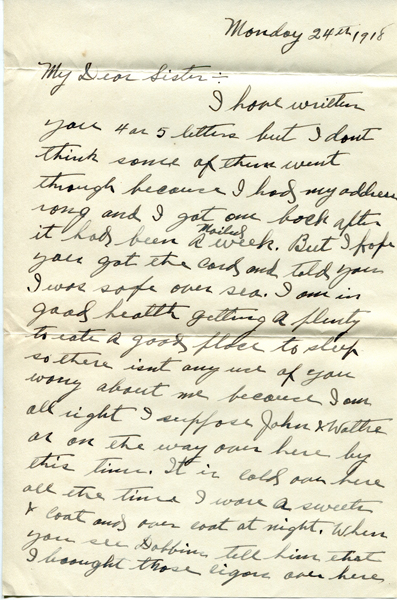 Monday 24th 1918
My Dear Sister:-
I have written
you 4 or 5 letters but I dont
think some of them went
through because I had my address
rong and I got one back after
it had been Mailed a week. But I hope
you got the card and told you
I was safe over sea. I am in
good health getting a plenty
to eate a good place to sleep
so there isnt any use of you
worry about me because I am
all right I suppose John & Waltre
ar on the way over here by
this time. It is cold over here
all the time I wore a sweete
& coat and over coat at night. When
you see Dobbins tell him that
I bought those cigars over here